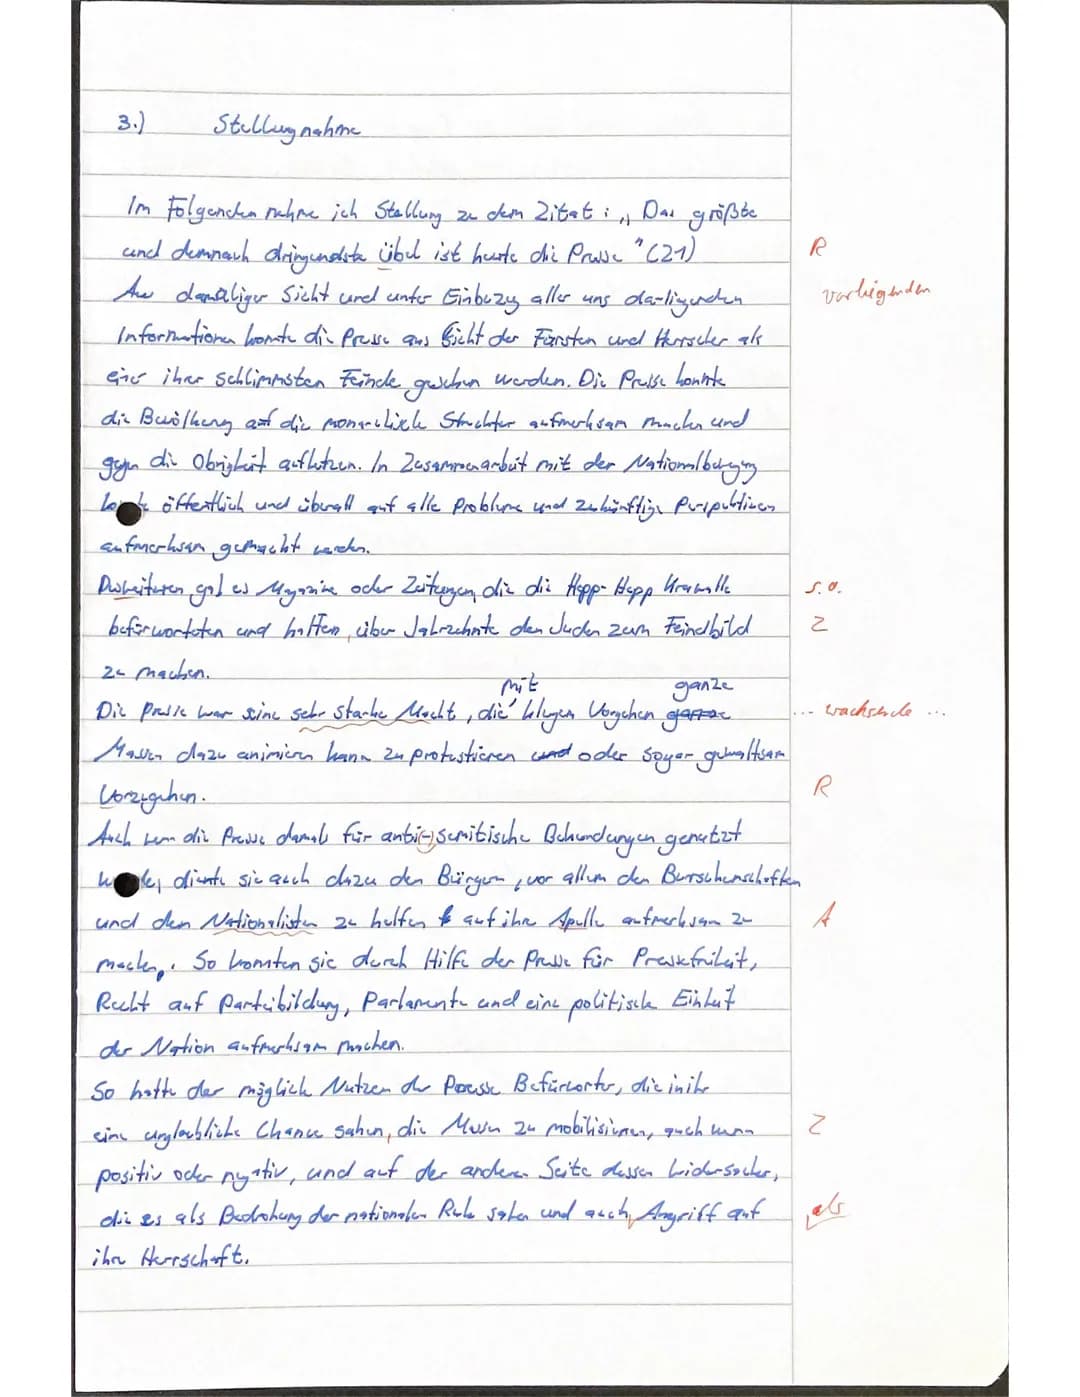 3.) Stellungnahme
Im Folgenden nehme ich Stellung zu dem Zitat: „Das größte
und demnach dringendste Übel ist heute die Presse" (Z1) R
Aus damaliger Sicht und unter Einbezug aller uns darliegenden vorliegenden
Informationen konnte die Presse aus Sicht der Fürsten und Herrscher als
einer ihrer schlimmsten Feinde gesehen werden. Die Presse konnte
die Bevölkerung auf die monarchische Struktur aufmerksam machen und
gegen die Obrigkeit aufhetzen. In Zusammenarbeit mit der Nationalbewegung
öffentlich und überall auf alle Probleme und zukünftige Perspektiven
aufmerksam gemacht werden.
Desweiteren gab es Magazine oder Zeitungen, die die Hepp-Hepp Krawalle s.o.
befürworteten und halfen, über Jahrzehnte den Juden zum Feindbild Z
zu machen.
mit ganze
Die Presse war seine sehr starke Macht, die klugen Vorgehen ... wachsende ...
Massen dazu animieren kann zu protestieren und oder sogar gewaltsam
Vorzugehen. R
Auch wenn die Presse damals für anti-semitische Bekundungen genutzt
diente sie auch dazu den Bürgern, vor allem den Burschenschaften
und den Nationalisten zu helfen auf ihre Apelle aufmerksam zu A
machen. So konnten sie durch Hilfe der Presse für Pressefreiheit,
Recht auf Parteibildung, Parlamente und eine politische Einheit
der Nation aufmerksam machen.
So hatte der möglich Nutzen der Presse Befürworter, die in ihr
eine unglaubliche Chance sahen, die Massen zu mobilisieren, auch wenn Z
positiv oder negativ, und auf der anderen Seite dessen Widersacher,
die es als Bedrohung der nationalen Ruhe sahen und auch Angriff auf als
ihre Herrschaft.